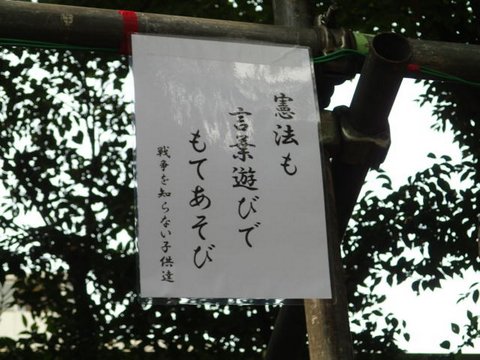 憲法も
言葉遊びで
もてあそび
戦争を知らない子供達